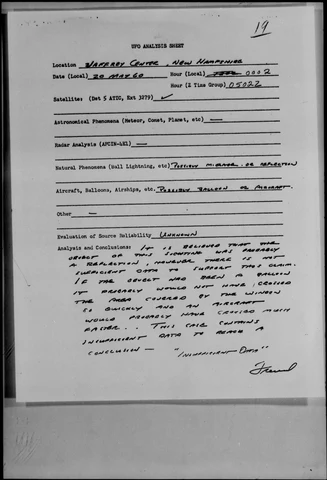 19
UFO ANALYSIS SHEET
Location JAFFREY CENTER, NEW HAMPSHIRE
Date (Local) 20 MAY 60 Hour (Local) 0002
Hour (Z Time Group) 0502Z
Satellites: (Det 5 ATIC, Ext 3279) ✓
Astronomical Phenomena (Meteor, Comet, Planet, etc) —
Radar Analysis (AFCIN-4E1) —
Natural Phenomena (Ball Lightning, etc) POSSIBLE MIRAGE OR REFLECTION
Aircraft, Balloons, Airships, etc. POSSIBLE BALLOON OR AIRCRAFT.
Other —
Evaluation of Source Reliability UNKNOWN
Analysis and Conclusions: IT IS BELIEVED THAT THE
OBJECT OF THIS SIGHTING WAS PROBABLY
A REFLECTION, HOWEVER THERE IS NOT
SUFFICIENT DATA TO SUPPORT THIS CLAIM.
IF THE OBJECT HAD BEEN A BALLOON
IT PROBABLY WOULD NOT HAVE CROSSED
THE AREA COVERED BY THE WINDOW
SO QUICKLY AND AN AIRCRAFT
WOULD PROBABLY HAVE CROSSED MUCH
FASTER... THIS CASE CONTAINS
INSUFFICIENT DATA TO REACH A
CONCLUSION — "INSUFFICIENT DATA"